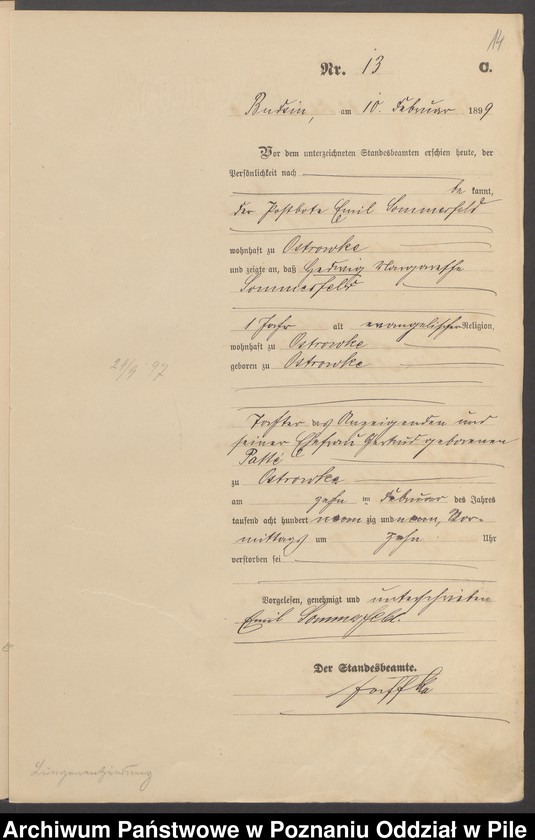 14
Nr. 13 C.
Budsin, am 10. Februar 1899
Vor dem unterzeichneten Standesbeamten erschien heute, der
Persönlichkeit nach
be kannt,
der Postbote Emil Sommerfeld
wohnhaft zu Ostrowke
und zeigte an, daß Hedwig Margarethe
Sommerfeld
1 Jahr alt evangelischer Religion,
wohnhaft zu Ostrowke
geboren zu Ostrowke
21/9 97
Tochter des Anzeigenden und
seiner Ehefrau Gertrud geborenen
zu Ostrowke
am zehn ten Februar des Jahres
tausend acht hundert neun zig und neun, Vor-
mittags um zehn Uhr
verstorben sei
Vorgelesen, genehmigt und unterschrieben
Emil Sommerfeld.
Der Standesbeamte.
Lungenentzündung
Archiwum Państwowe w Poznaniu Oddział w Pile